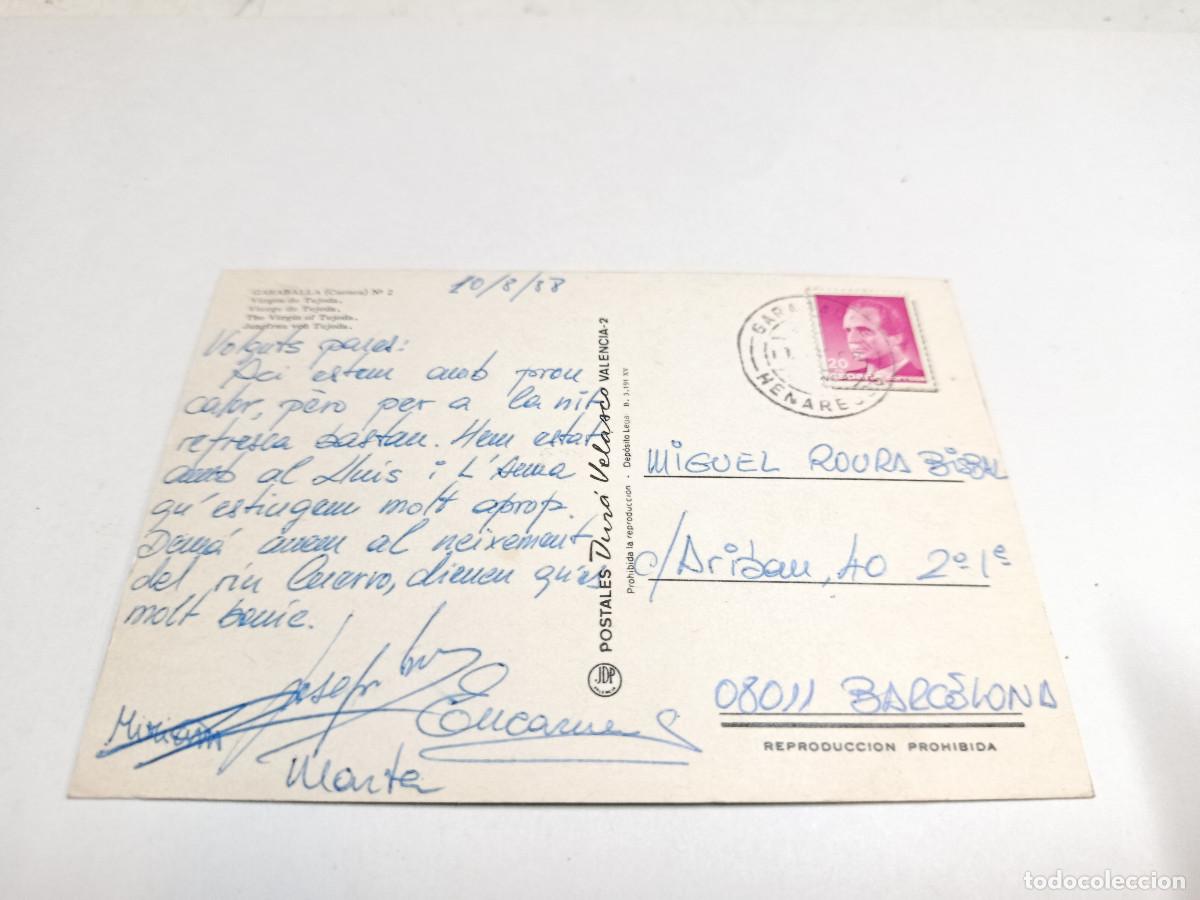 GARABALLA (Cuenca) Nº 2
Virgen de Tejeda.
Vierge de Tejeda.
The Virgin of Tejeda.
Jungfrau von Tejeda.
10/8/88
Volguts pares:
Aci estem amb prou
calor, pèro per a la nit
refresca bastan. Hem estat
amb al Lluis i L'Anna
qu'estingem molt aprop.
Demá anem al neixement
del riu Cuervo, dienen qu'es
molt bonic.
Josep
Miriam
Encarna
Marta
POSTALES Durá Velasco VALENCIA-2
Prohibida la reproducción - Depósito Legal B. 3.191 XV
JDP
VALENCIA
GARA
HENARE
20
MIGUEL ROURA BISBAL
c/ Aribau, 40 2º 1ª
08011 BARCELONA
REPRODUCCION PROHIBIDA
todocoleccion